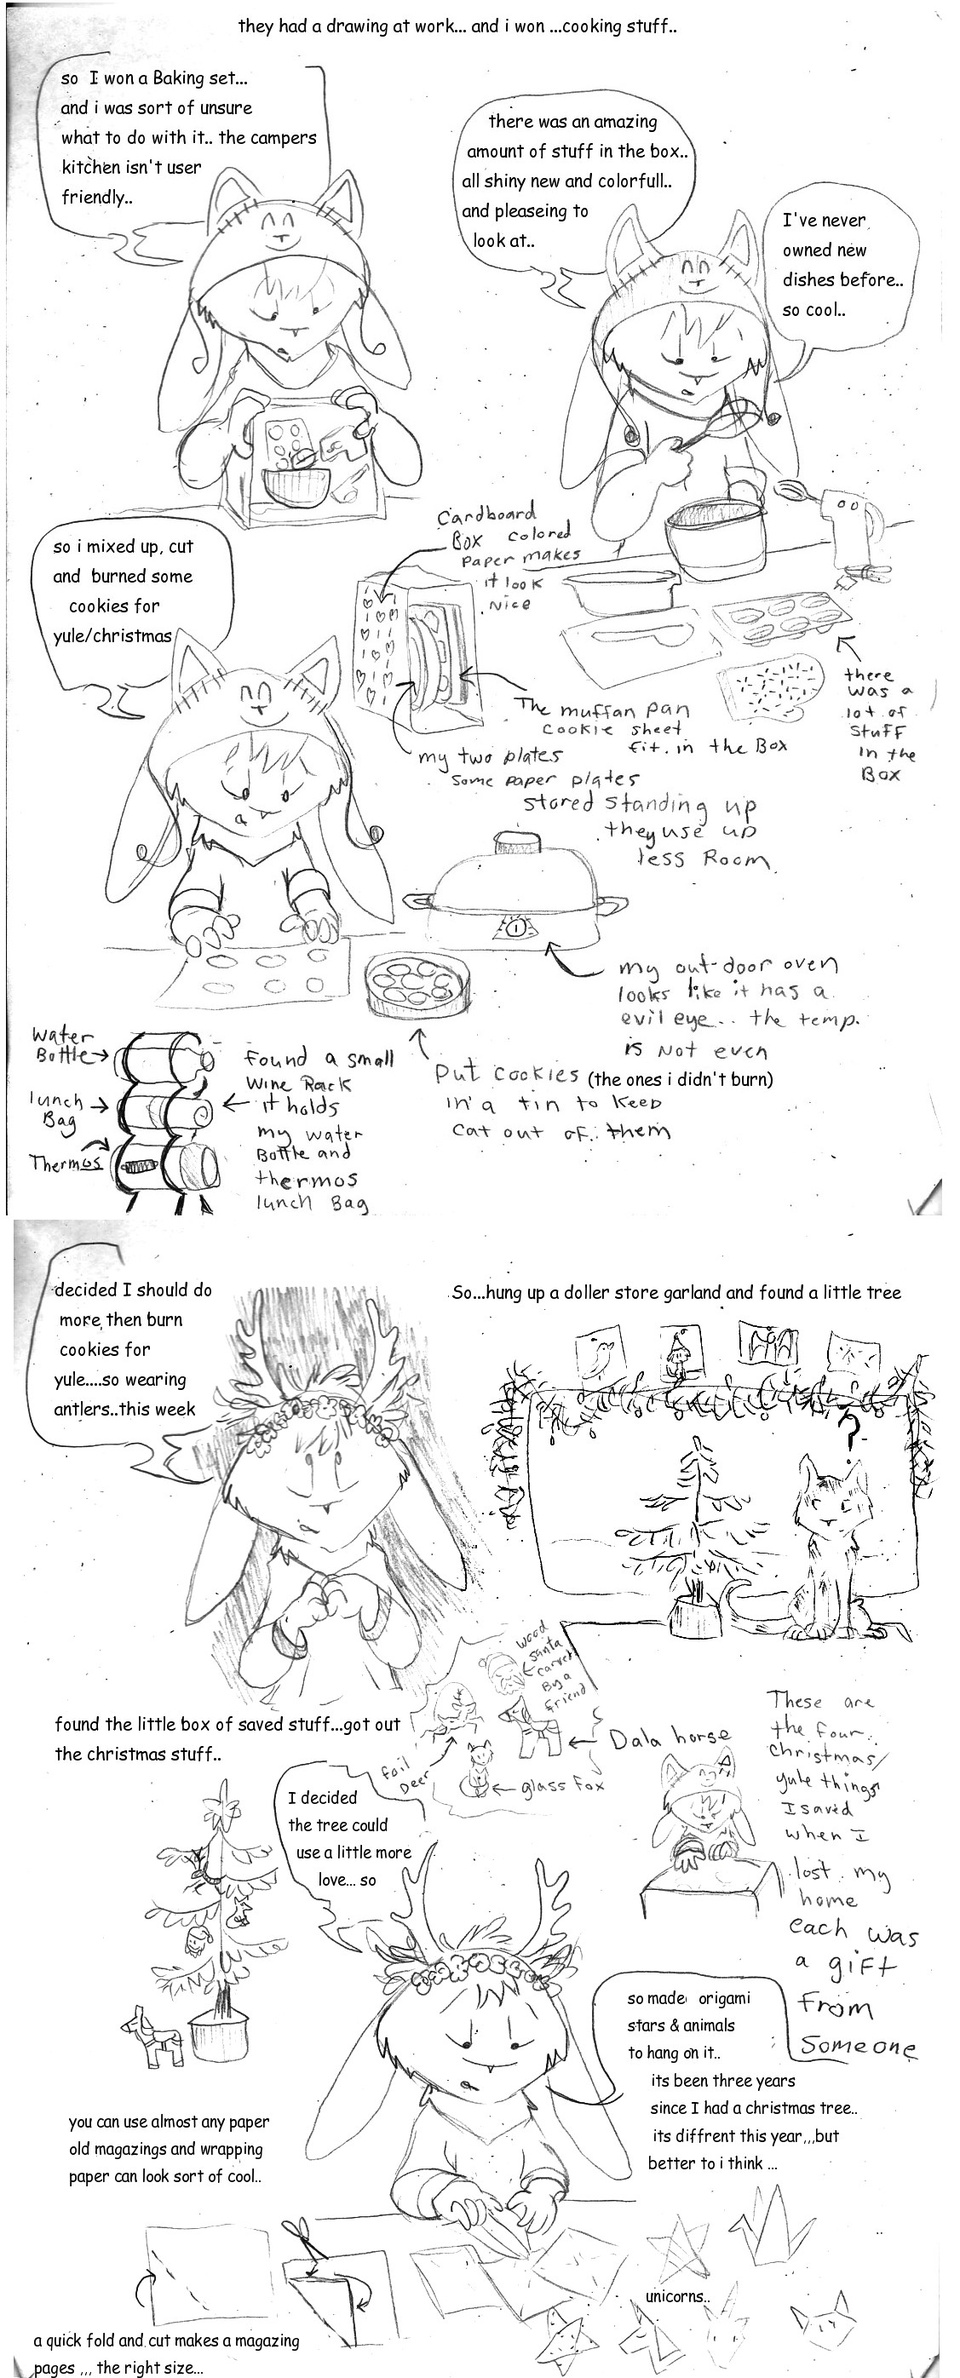 they had a drawing at work... and i won ...cooking stuff..
so I won a Baking set...
and i was sort of unsure
what to do with it.. the campers
kitchen isn't user
friendly..
there was an amazing
amount of stuff in the box..
all shiny new and colorfull..
and pleaseing to
look at..
I've never
owned new
dishes before..
so cool..
so i mixed up, cut
and burned some
cookies for
yule/christmas
Cardboard
Box colored
paper makes
it look
nice
there
was a
lot of
stuff
in the
Box
The muffan pan
cookie sheet
fit. in the Box
my two plates
some paper plates
stored standing up
they use up
less Room
my out-door oven
looks like it has a
evil eye.. the temp.
is not even
Put cookies (the ones i didn't burn)
in a tin to keep
cat out of.. them
Water
Bottle
lunch
Bag
Thermos
found a small
wine Rack
it holds
my water
Bottle and
thermos
lunch Bag
decided I should do
more then burn
cookies for
yule....so wearing
antlers..this week
So...hung up a doller store garland and found a little tree
?
found the little box of saved stuff...got out
the christmas stuff..
wood
santa
carved
By a
friend
Dala horse
foil
Deer
glass fox
These are
the four
christmas/
yule things
I saved
when I
lost my
home
each was
a gift
from
someone
I decided
the tree could
use a little more
love... so
so made origami
stars & animals
to hang on it..
its been three years
since I had a christmas tree..
its diffrent this year,,,but
better to i think ...
you can use almost any paper
old magazings and wrapping
paper can look sort of cool..
unicorns..
a quick fold and cut makes a magazing
pages ,,, the right size...